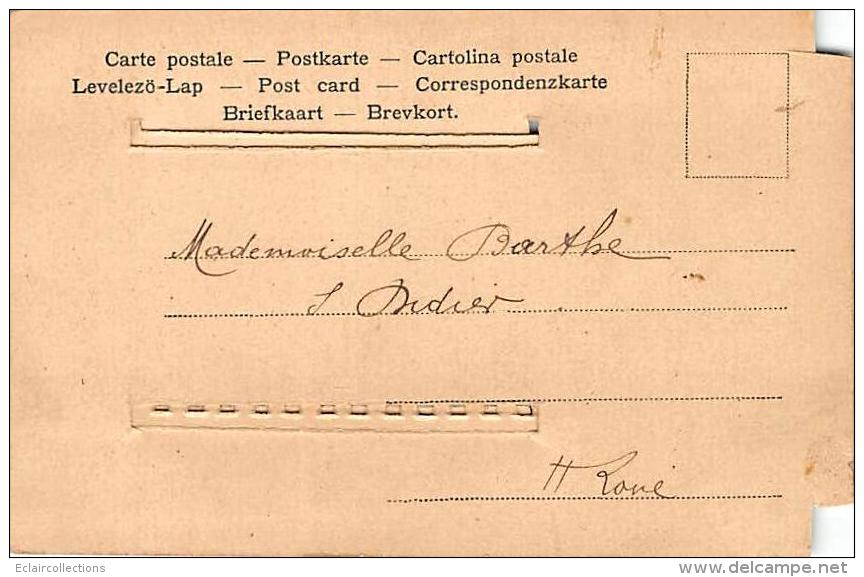 Carte postale — Postkarte — Cartolina postale
Levelezö-Lap — Post card — Correspondenzkarte
Briefkaart — Brevkort.
Mademoiselle Barthe
S Didier
Hte Loire
Eclaircollections
delcampe.net